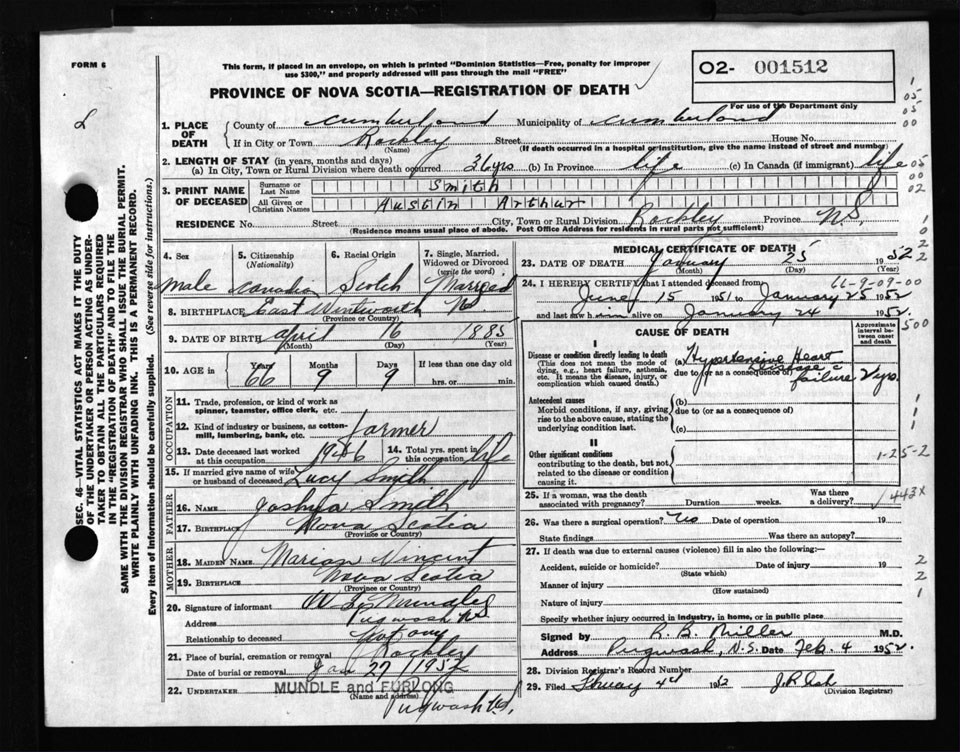 FORM 6
This form, if placed in an envelope, on which is printed "Dominion Statistics—Free, penalty for improper
use $300," and properly addressed will pass through the mail "FREE"
PROVINCE OF NOVA SCOTIA—REGISTRATION OF DEATH
02- 001512
For use of the Department only
1. PLACE OF DEATH County of Cumberland Municipality of Cumberland
If in City or Town Rockley Street House No.
(Name) (If death occurred in a hospital or institution, give the name instead of street and number)
2. LENGTH OF STAY (in years, months and days)
(a) In City, Town or Rural Division where death occurred 36 yrs (b) In Province life (c) In Canada (if immigrant) life
3. PRINT NAME OF DECEASED Surname or Last Name Smith
All Given or Christian Names Austin Arthur
RESIDENCE No. Street City, Town or Rural Division Rockley Province N.S.
(Residence means usual place of abode. Post Office Address for residents in rural parts not sufficient)
4. Sex male
5. Citizenship (Nationality) Canadian
6. Racial Origin Scotch
7. Single, Married, Widowed or Divorced (write the word) Married
8. BIRTHPLACE East Wentworth N.S.
(Province or Country)
9. DATE OF BIRTH April 16 1885
(Month) (Day) (Year)
10. AGE in Years 66 Months 9 Days 9 If less than one day old
hrs. or min.
OCCUPATION
11. Trade, profession, or kind of work as
spinner, teamster, office clerk, etc.
12. Kind of industry or business, as cotton-
mill, lumbering, bank, etc. farmer
13. Date deceased last worked at this occupation 1946 14. Total yrs. spent in this occupation life
15. If married give name of wife
or husband of deceased Lucy Smith
FATHER
16. NAME Joshua Smith
17. BIRTHPLACE Nova Scotia
(Province or Country)
MOTHER
18. MAIDEN NAME Marion Vincent
19. BIRTHPLACE Nova Scotia
(Province or Country)
20. Signature of informant Mundle
Address Pugwash N.S.
Relationship to deceased not any
21. Place of burial, cremation or removal Rockley
Date of burial or removal Jan 27 1952
22. UNDERTAKER MUNDLE and FURLONG
(Name and address)
Pugwash N.S.
MEDICAL CERTIFICATE OF DEATH
23. DATE OF DEATH January 25 1952
(Month) (Day) (Year)
66-9-09-00
24. I HEREBY CERTIFY that I attended deceased from
June 15 1951 to January 25 1952
and last saw him alive on January 24 1952.
CAUSE OF DEATH
Approximate interval between onset and death
I
Disease or condition directly leading to death
(This does not mean the mode of
dying, e.g., heart failure, asthenia,
etc. It means the disease, injury, or
complication which caused death.)
(a) Hypertensive Heart
Disease c failure 2 yrs.
due to (or as a consequence of)
Antecedent causes
Morbid conditions, if any, giving
rise to the above cause, stating the
underlying condition last.
(b)
due to (or as a consequence of)
(c)
II
Other significant conditions
contributing to the death, but not
related to the disease or condition
causing it.
1-25-2
25. If a woman, was the death associated with pregnancy? Duration weeks. Was there a delivery?
443X
26. Was there a surgical operation? No Date of operation 19
State findings Was there an autopsy?
27. If death was due to external causes (violence) fill in also the following:—
Accident, suicide or homicide? Date of injury 19
(State which)
Manner of injury
(How sustained)
Nature of injury
Specify whether injury occurred in industry, in home, or in public place
Signed by R. B. Miller M.D.
Address Pugwash, N.S. Date Feb. 4 1952.
28. Division Registrar's Record Number
29. Filed 4th 1952
(Division Registrar)
SEC. 46—VITAL STATISTICS ACT MAKES IT THE DUTY
OF THE UNDERTAKER OR PERSON ACTING AS UNDER-
TAKER TO OBTAIN ALL THE PARTICULARS REQUIRED
IN THE "REGISTRATION OF DEATH" AND TO FILE THE
SAME WITH THE DIVISION REGISTRAR WHO SHALL ISSUE THE BURIAL PERMIT.
WRITE PLAINLY WITH UNFADING INK. THIS IS A PERMANENT RECORD.
Every item of Information should be carefully supplied. (See reverse side for instructions.)